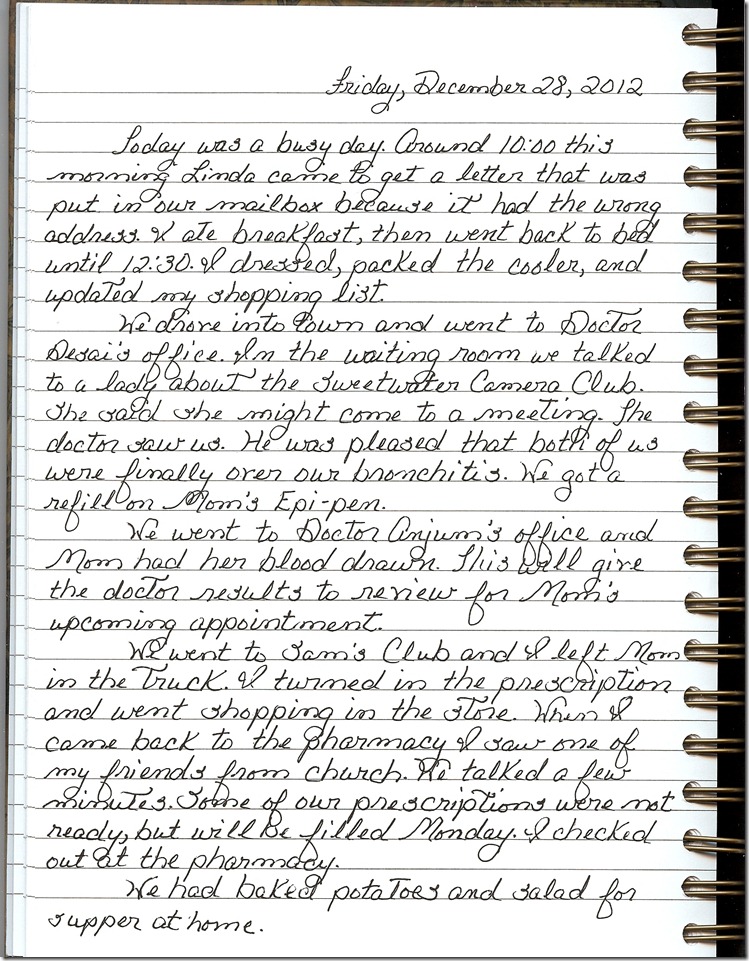 Friday, December 28, 2012
Today was a busy day. Around 10:00 this
morning Linda came to get a letter that was
put in our mailbox because it had the wrong
address. I ate breakfast, then went back to bed
until 12:30. I dressed, packed the cooler, and
updated my shopping list.
We drove into town and went to Doctor
Desai's office. In the waiting room we talked
to a lady about the Sweetwater Camera Club.
She said she might come to a meeting. The
doctor saw us. He was pleased that both of us
were finally over our bronchitis. We got a
refill on Mom's Epi-pen.
We went to Doctor Anjum's office and
Mom had her blood drawn. This will give
the doctor results to review for Mom's
upcoming appointment.
We went to Sam's Club and I left Mom
in the Truck. I turned in the prescription
and went shopping in the store. When I
came back to the pharmacy I saw one of
my friends from church. We talked a few
minutes. Some of our prescriptions were not
ready, but will be filled Monday. I checked
out at the pharmacy.
We had baked potatoes and salad for
supper at home.